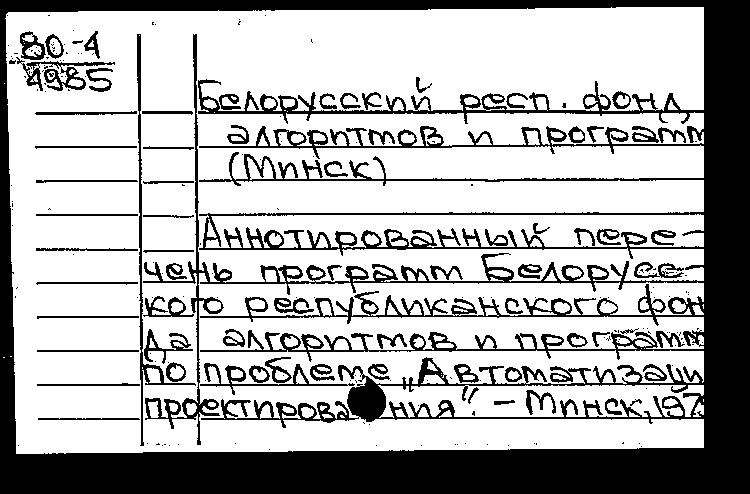 80-4
4985
Белорусский респ. фонд
алгоритмов и программ
(Минск)
Аннотированный пере-
чень программ Белорусс-
кого республиканского фон
да алгоритмов и программ
по проблеме „Автоматизаци
проектирования". - Минск, 197